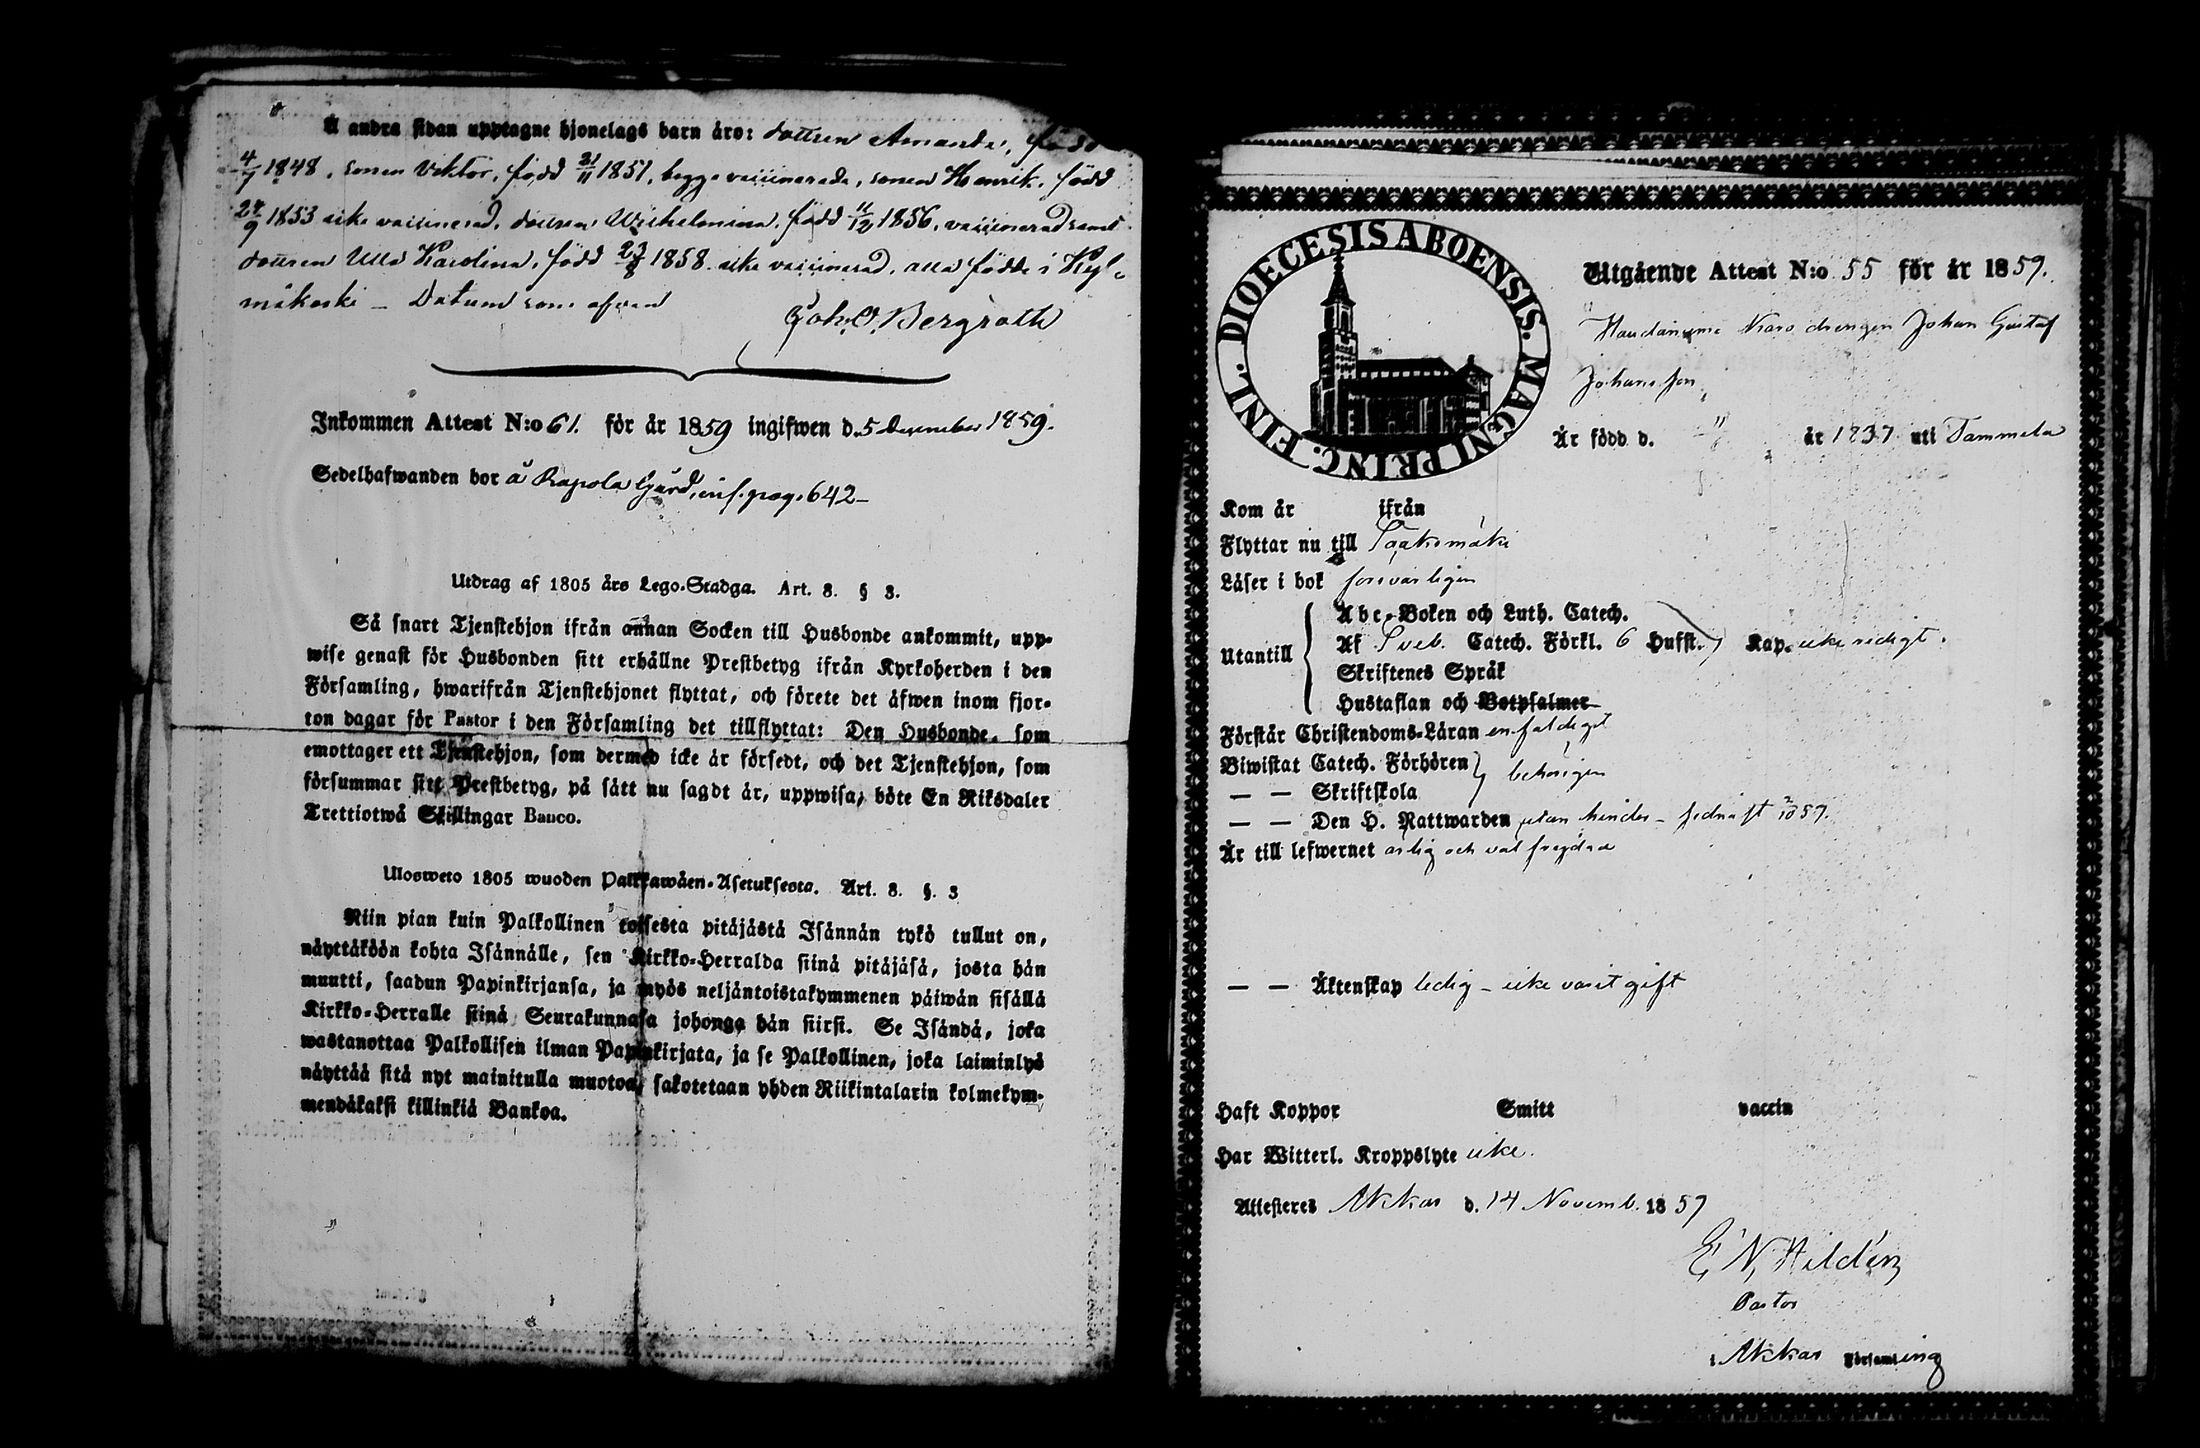 Å andra sidan upptagne hjonelags barn äro: dottren Amanda, född
4/7 1848, sonen Viktor, född 21/11 1851, begge vaccinerade, sonen Henrik, född
24/9 1853 icke vaccinerad, dottren Wilhelmina, född 11/12 1856, vaccinerad samt
dottren Ulla Karolina, född 23/8 1858 icke vaccinerad, alla födde i Kyl-
mäkoski – Datum som ofvan
Joh. O. Bergroth
Inkommen Attest N:o 61. för år 1859 ingifwen d. 5 december 1859.
Sedelhafwanden bor å Rapola Gård, inf. pag. 642 –
Utdrag af 1805 års Lego-Stadga. Art. 8. § 3.
Så snart Tjenstehjon ifrån annan Socken till Husbonde ankommit, upp-
wise genast för Husbonden sitt erhållne Prestbetyg ifrån Kyrkoherden i den
Församling, hwarifrån Tjenstehjonet flyttat, och förete det äfwen inom fjor-
ton dagar för Pastor i den Församling det tillflyttat: Den Husbonde, som
emottager ett Tjenstehjon, som dermed icke är försedt, och det Tjenstehjon, som
försummar sitt Prestbetyg, på sätt nu sagdt är, uppwisa, böte En Riksdaler
Trettiotwå Skillingar Banco.
Ulosweto 1805 wuoden Palkkawäen-Asetuksesta. Art. 8. §. 3
Niin pian kuin Palkollinen toisesta pitäjästä Isännän tykö tullut on,
näyttäköön kohta Isännälle, sen Kirkko-Herralda siinä pitäjäsä, josta hän
muutti, saadun Papinkirjansa, ja myös neljäntoistakymmenen päiwän sisällä
Kirkko-Herralle siinä Seurakunnasa johonga hän siirsi. Se Isändä, joka
wastanottaa Palkollisen ilman Papinkirjata, ja se Palkollinen, joka laiminlyö
näyttää sitä nyt mainitulla muotoa, sakotetaan yhden Riikintalarin kolmekym-
mendäkaksi killinkiä Bankoa.
DIOECESIS ABOENSIS. MAGNI PRINC. FINL.
Utgående Attest N:o 55 för år 1859.
drengen Johan Gustaf
Johansson
Är född d. år 1837 uti Tammela
Kom år ifrån
Flyttar nu till Sääksmäki
Läser i bok försvarligen
Abc-Boken och Luth. Catech.
Utantill Af Sveb. Catech. Förkl. 6 Hufst. Kap. icke redigt.
Skriftenes Språk
Hustaflan och Botpsalmer
Förstår Christendoms-Läran enfaldigt
Biwistat Catech. Förhören behörigen
— — Skriftskola
— — Den H. Nattwarden utan hinder – sednast 2/10 59.
Är till lefwernet ärlig och väl frejdad
— — Äktenskap ledig – icke varit gift
Haft Koppor Smitt vaccin
Har Witterl. Kroppslyte icke.
Attesteres Akkas d. 14 Novemb. 1859
E. N. Hildén
Pastor
i Akkas Församling